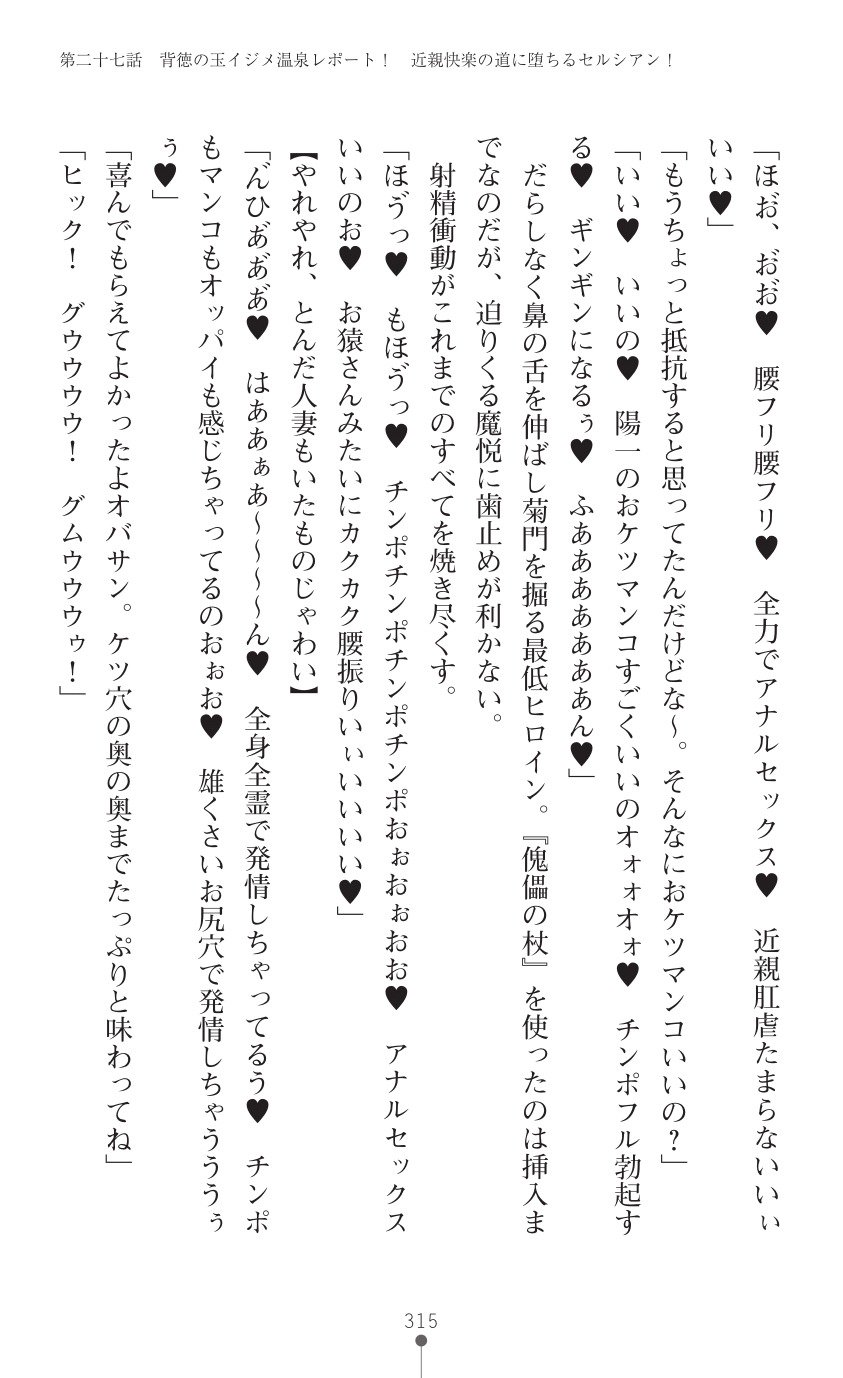 第二十七話　背徳の玉イジメ温泉レポート！　近親快楽の道に堕ちるセルシアン！
「ほぉ゛、お゛ぉ゛♥　腰フリ腰フリ♥　全力でアナルセックス♥　近親肛虐たまらないいぃ
いい♥」
「もうちょっと抵抗すると思ってたんだけどな～。そんなにおケツマンコいいの？」
「いい♥　いいの♥　陽一のおケツマンコすごくいいのオォォオォ♥　チンポフル勃起す
る♥　ギンギンになるぅ♥　ふああああああああん♥」
　だらしなく鼻の舌を伸ばし菊門を掘る最低ヒロイン。『傀儡の杖』を使ったのは挿入ま
でなのだが、迫りくる魔悦に歯止めが利かない。
　射精衝動がこれまでのすべてを焼き尽くす。
「ほう゛っ♥　もほう゛っ♥　チンポチンポチンポチンポおぉおぉおお♥　アナルセックス
いいのお♥　お猿さんみたいにカクカク腰振りいぃいいいい♥」
【やれやれ、とんだ人妻もいたものじゃわい】
「ん゛ひあ゛あ゛あ゛♥　はああぁあ～～～～ん♥　全身全霊で発情しちゃってるう♥　チンポ
もマンコもオッパイも感じちゃってるのおぉお♥　雄くさいお尻穴で発情しちゃうううぅ
ぅ♥」
「喜んでもらえてよかったよオバサン。ケツ穴の奥の奥までたっぷりと味わってね」
「ヒック！　グウウウウ！　グムウウウゥ！」
315